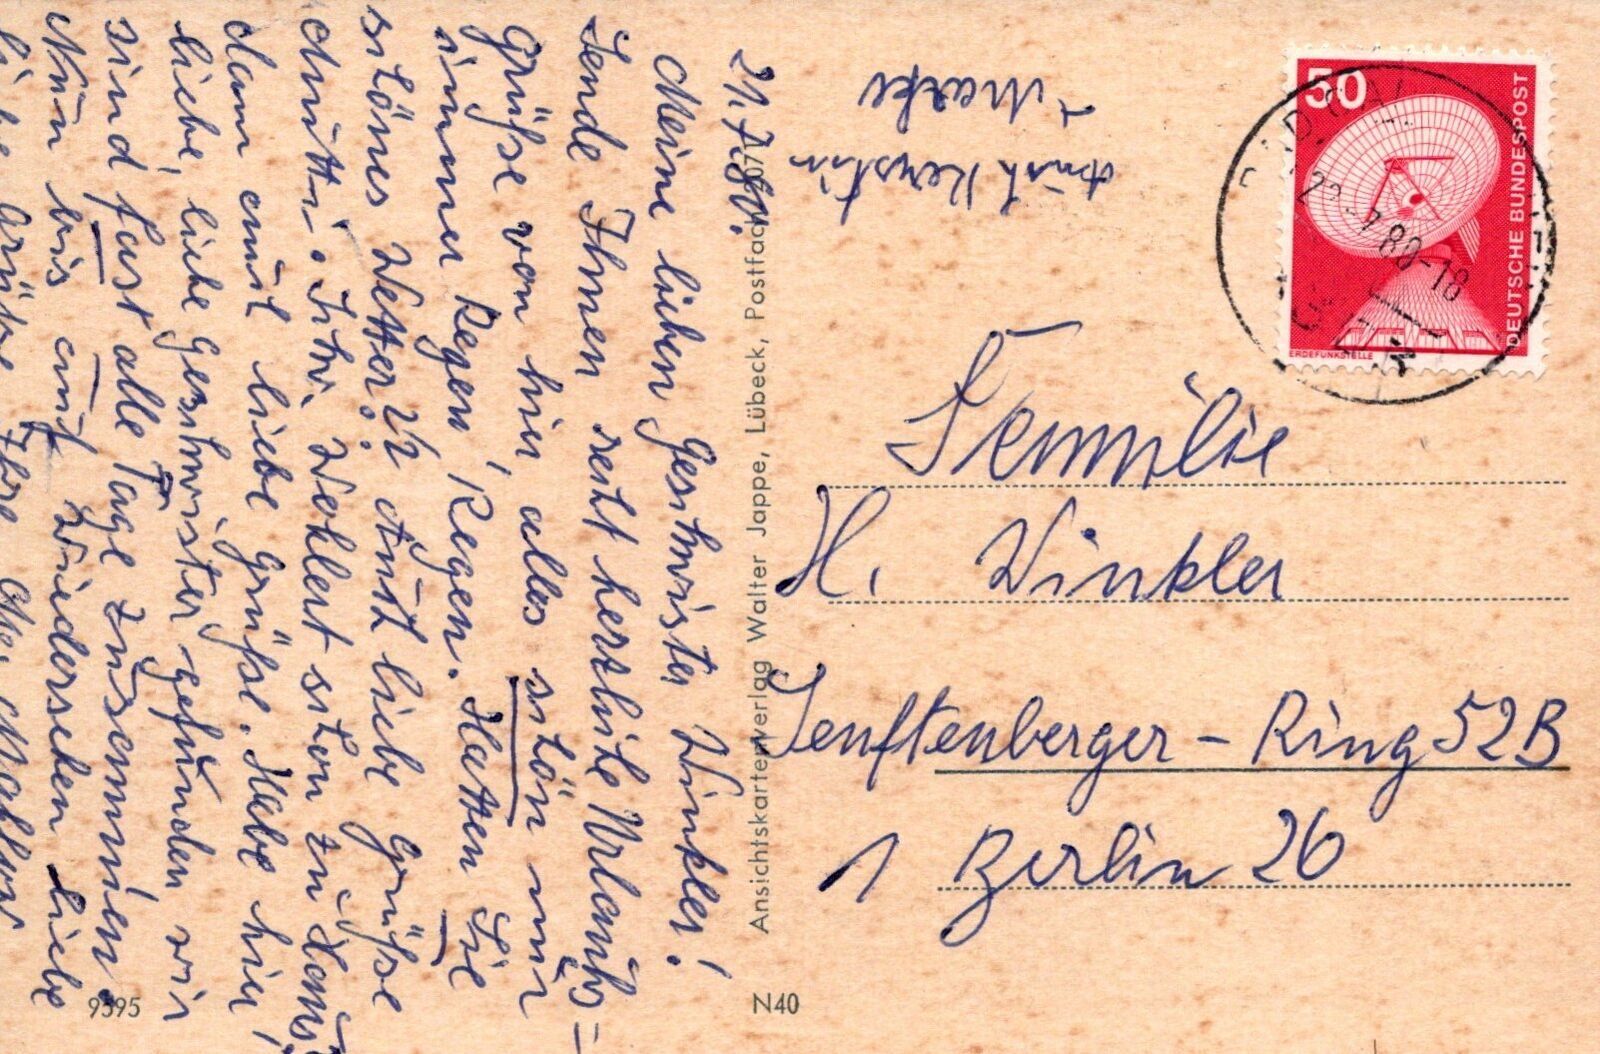 21.7.80.
Meine lieben Geschwister Winkler!
Sende Ihnen recht herzliche Urlaubs=
grüße von hier alles schön nur
immer Regen, Regen. Hatten Sie
schönes Wetter?? Auch liebe Grüße
Mutti. Ichr. Wohlert schon zu Haus?
dann auch liebe Grüße. Habe hier
liebe, liebe Geschwister gefunden wir
sind fast alle Tage zusammen.
Nun bis auf Wiedersehen liebe
liebe Grüße Ihre
Auch Kerstin
Ansichtskartenverlag Walter Jappe, Lübeck, Postfach
9595
N40
50
DEUTSCHE BUNDESPOST
ERDEFUNKSTELLE
22.-7.80-18
Familie
H. Winkler
Senftenberger - Ring 52B
1 Berlin 26